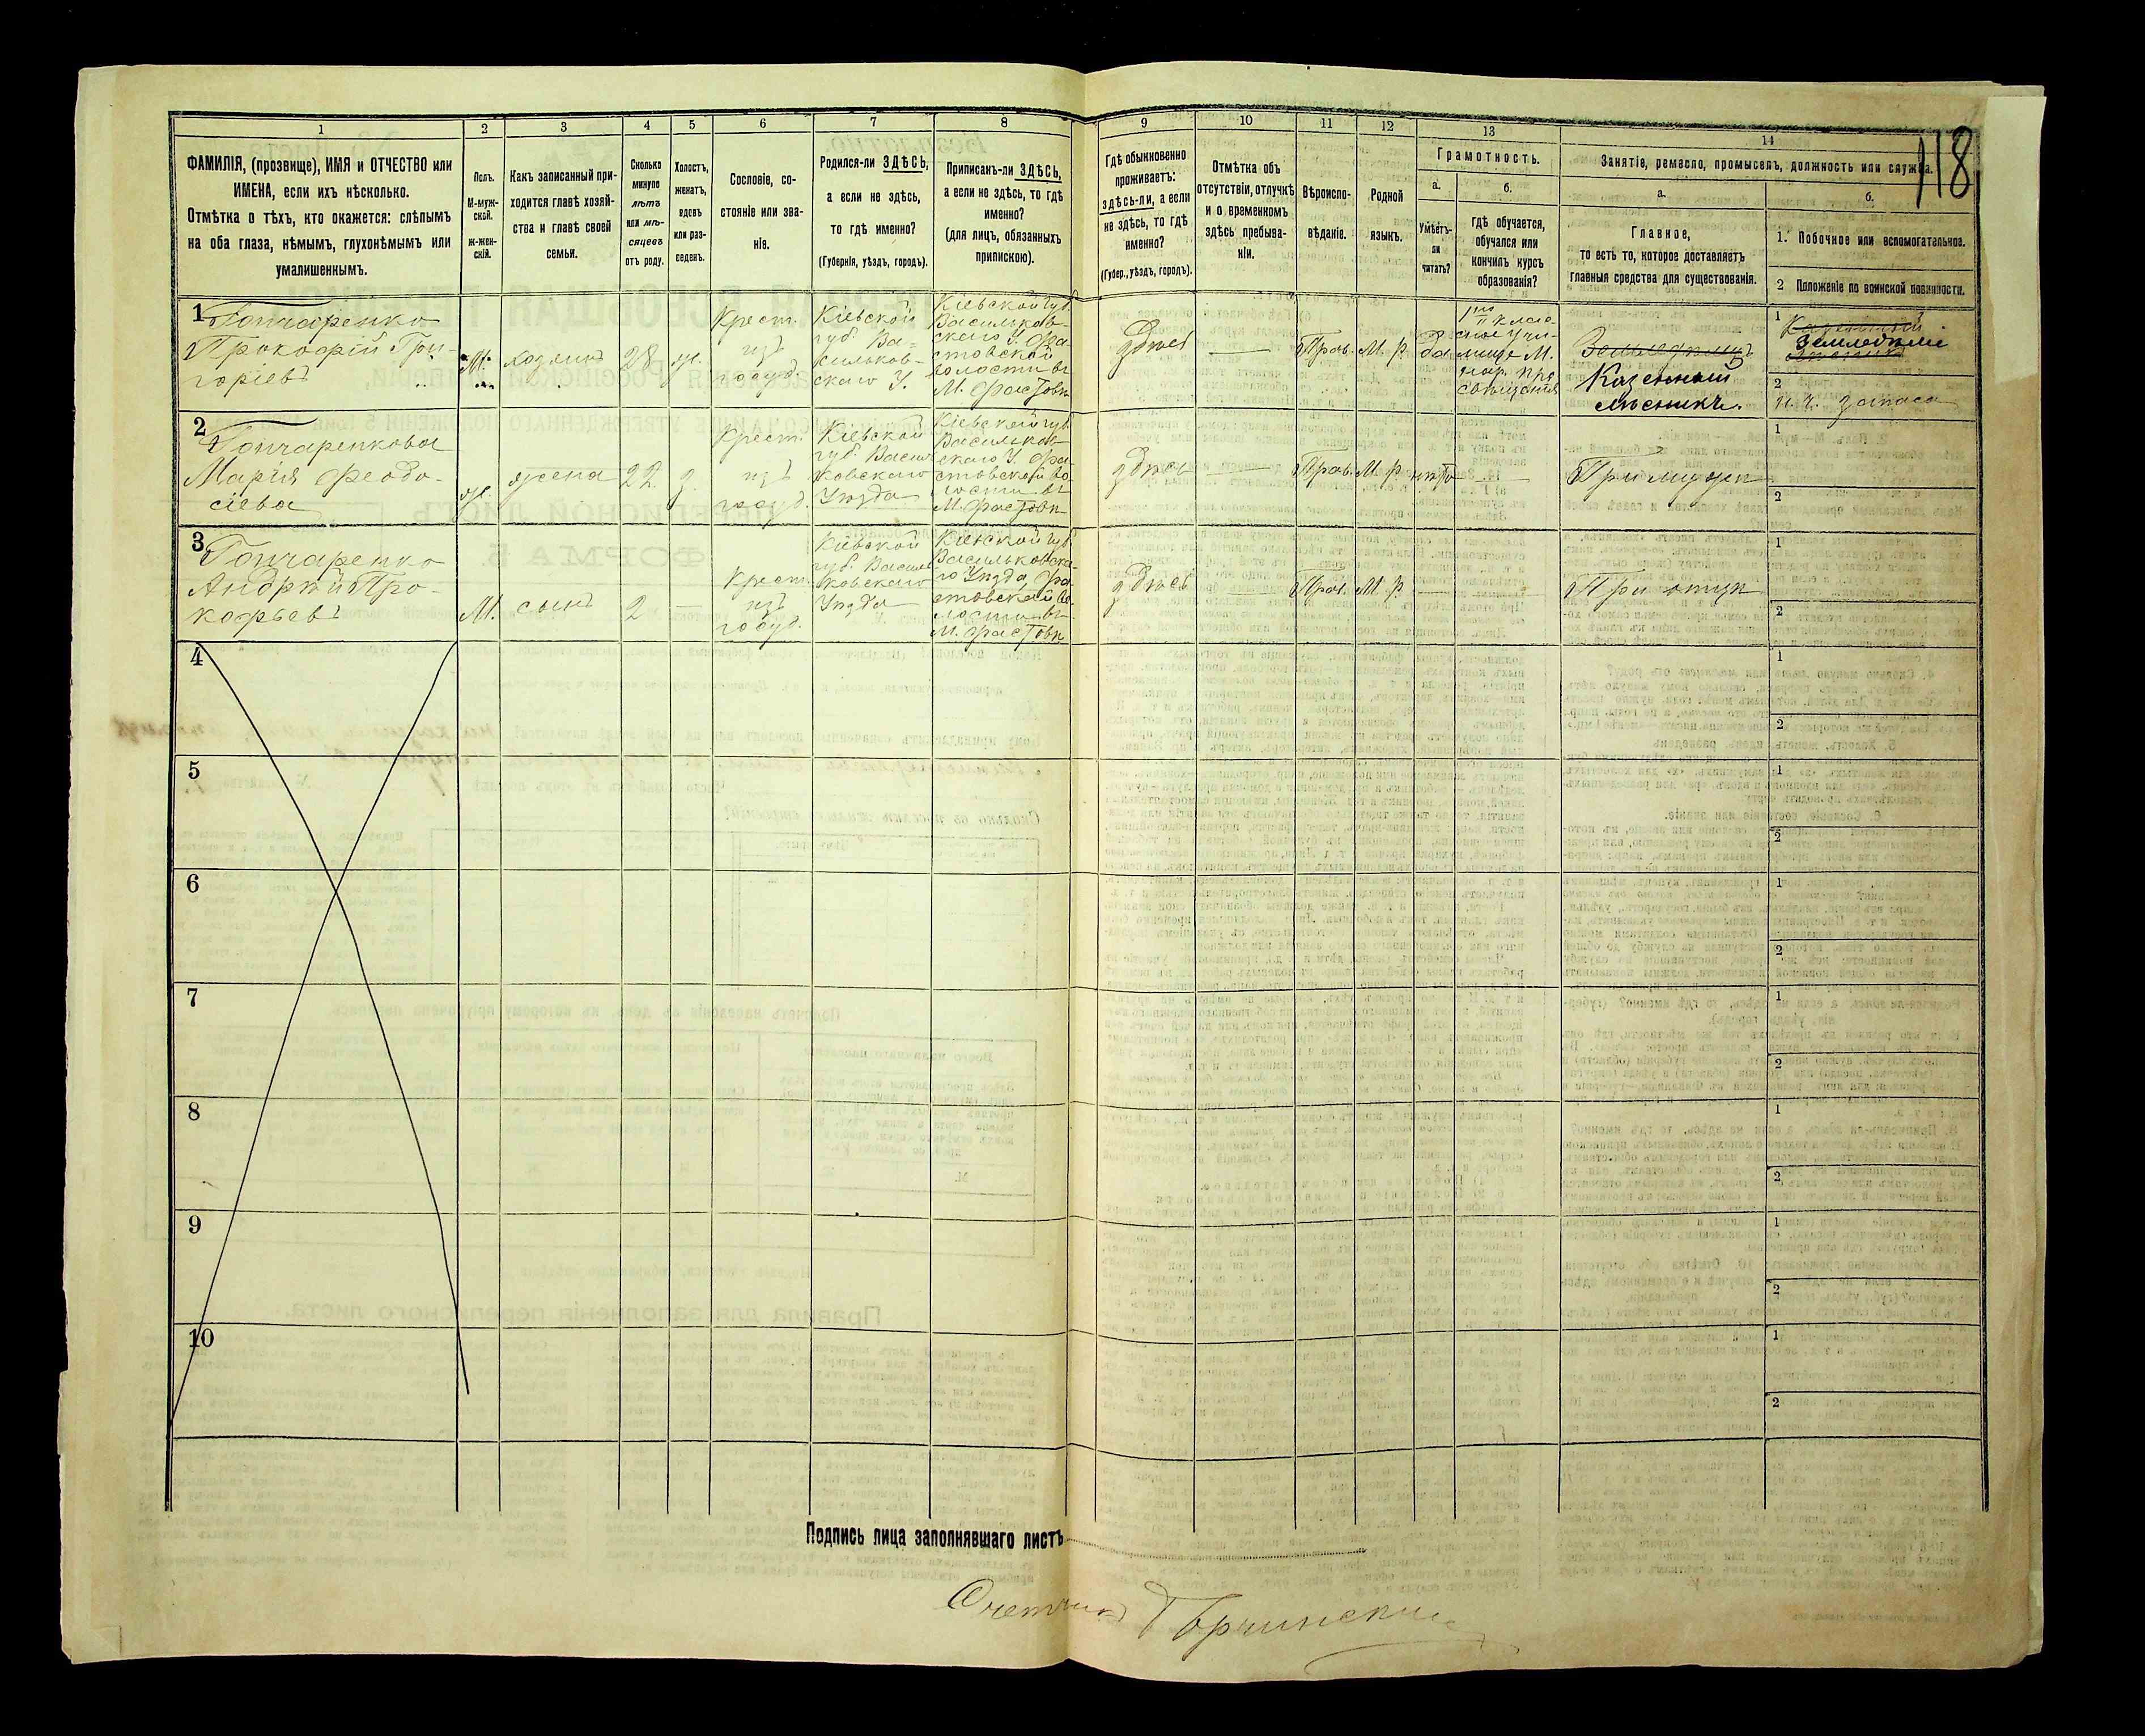 118
1
2
3
4
5
6
7
8
9
10
11
12
13
14
ФАМИЛІЯ, (прозвище), ИМЯ и ОТЧЕСТВО или
ИМЕНА, если ихъ нѣсколько.
Отмѣтка о тѣхъ, кто окажется: слѣпымъ
на оба глаза, нѣмымъ, глухонѣмымъ или
умалишеннымъ.
Полъ.
М-муж-
ской.
ж-жен-
скій.
Какъ записанный при-
ходится главѣ хозяй-
ства и главѣ своей
семьи.
Сколько
минуло
лѣтъ
или мѣ-
сяцевъ
отъ роду.
Холостъ,
женатъ,
вдовъ
или раз-
веденъ.
Сословіе, со-
стояніе или зва-
ніе.
Родился-ли ЗДѢСЬ,
а если не здѣсь,
то гдѣ именно?
(Губернія, уѣздъ, городъ).
Приписанъ-ли ЗДѢСЬ,
а если не здѣсь, то гдѣ
именно?
(для лицъ, обязанныхъ
припискою).
Гдѣ обыкновенно
проживаетъ:
здѣсь-ли, а если
не здѣсь, то гдѣ
именно?
(Губер., уѣздъ, городъ).
Отмѣтка объ
отсутствіи, отлучкѣ
и о временномъ
здѣсь пребыва-
ніи.
Вѣроиспо-
вѣданіе.
Родной
языкъ.
Грамотность.
а.
Умѣетъ-
ли
читать?
б.
гдѣ обучается,
обучался или
кончилъ курсъ
образованія?
Занятіе, ремесло, промыселъ, должность или служба.
а.
Главное,
то есть то, которое доставляетъ
главныя средства для существованія.
б.
1. Побочное или вспомогательное.
2 Положеніе по воинской повинности.
1
Гончаренко
Прокофій Гри-
горіевъ
М.
хозяинъ
28
ж.
Крест.
изъ
госуд.
Кіевской
губ. Ва-
сильков-
скаго У.
Кіевской губ.
Васильков-
скаго У. Фа-
стовской
волости въ
М. Фастовѣ
здѣсь
—
Прав.
М. р.
да
класс
ное Учи-
лище М.
нар. про
свѣщенія
Земледѣлецъ
Казенный
лѣсникъ.
1
Казенный
Земледѣліе
2
н. ч. запаса
2
Гончаренкова
Марія Феодо-
сіева
ж.
жена
22
з.
Крест.
изъ
госуд.
Кіевской
губ. Василь
ковскаго
Уѣзда
Кіевской губ
Василько-
скаго У. Фа-
стовской во
лости въ
М. Фастовѣ
здѣсь
—
Прав.
М. р.
нѣтъ
—
При мужѣ
1
2
3
Гончаренко
Андрѣй Про-
кофьевъ
М.
сынъ
2
—
Крест.
изъ
госуд.
Кіевской
губ. Василь
ковскаго
Уѣзда
Кіевской губ.
Васильковска-
го Уѣзда, Фа
стовской Во
лости въ
М. Фастовѣ
здѣсь
Прав.
М. р.
—
При отцѣ
1
2
4
1
2
5
1
2
6
1
2
7
1
2
8
1
2
9
1
2
10
1
2
Подпись лица заполнявшаго листъ
Счетчикъ